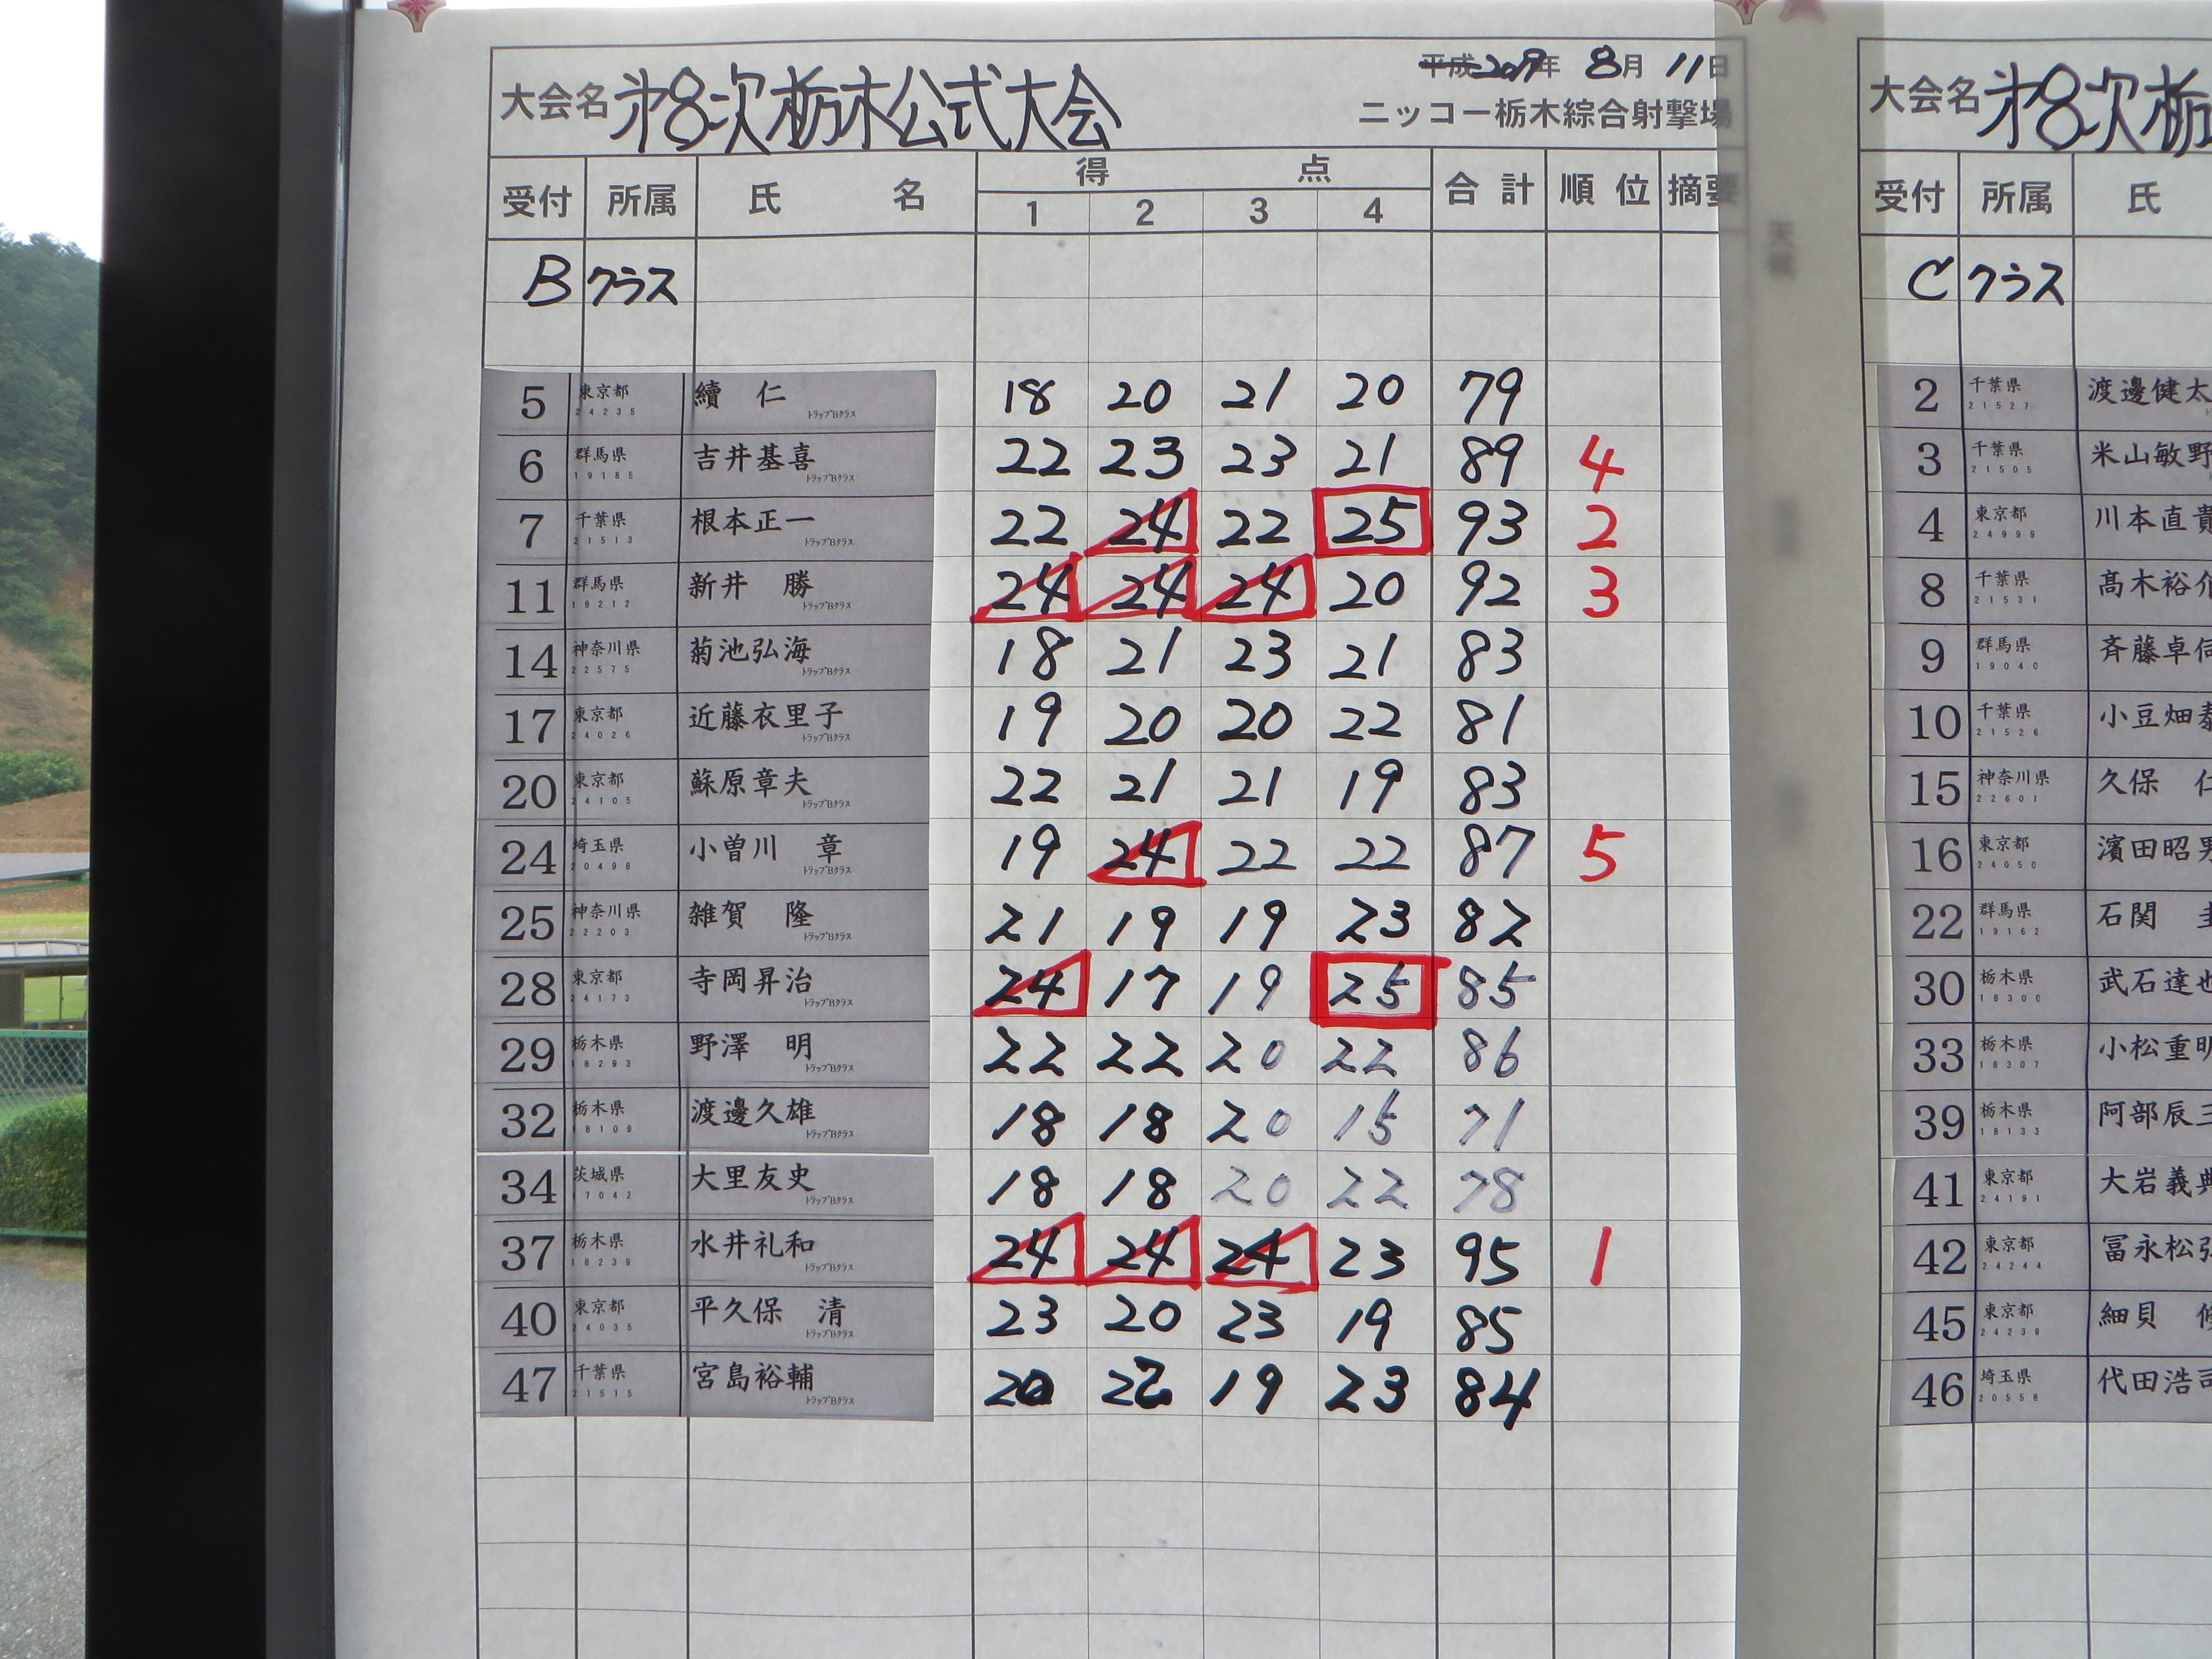 大会名 第8次栃木公式大会
平成 2019年 8月 11日
ニッコー栃木綜合射撃場
受付 所属 氏名 得点 合計 順位 摘要
1 2 3 4
B クラス
5 東京都 24235 續 仁 トラップBクラス 18 20 21 20 79
6 群馬県 19185 吉井基喜 トラップBクラス 22 23 23 21 89 4
7 千葉県 21513 根本正一 トラップBクラス 22 24 22 25 93 2
11 群馬県 19212 新井 勝 トラップBクラス 24 24 24 20 92 3
14 神奈川県 22575 菊池弘海 トラップBクラス 18 21 23 21 83
17 東京都 24026 近藤衣里子 トラップBクラス 19 20 20 22 81
20 東京都 24105 蘇原章夫 トラップBクラス 22 21 21 19 83
24 埼玉県 20498 小曽川 章 トラップBクラス 19 24 22 22 87 5
25 神奈川県 22203 雑賀 隆 トラップBクラス 21 19 19 23 82
28 東京都 24173 寺岡昇治 トラップBクラス 24 17 19 25 85
29 栃木県 18293 野澤 明 トラップBクラス 22 22 20 22 86
32 栃木県 18109 渡邊久雄 トラップBクラス 18 18 20 15 71
34 茨城県 17042 大里友史 トラップBクラス 18 18 20 22 78
37 栃木県 18239 水井礼和 トラップBクラス 24 24 24 23 95 1
40 東京都 24035 平久保 清 トラップBクラス 23 20 23 19 85
47 千葉県 21515 宮島裕輔 トラップBクラス 20 22 19 23 84
大会名 第8次栃
受付 所属 氏
C クラス
2 千葉県 21527 渡邊健太
3 千葉県 21505 米山敏野
4 東京都 24999 川本直貴
8 千葉県 21531 髙木裕介
9 群馬県 19040 斉藤卓伺
10 千葉県 21526 小豆畑泰
15 神奈川県 22601 久保 仁
16 東京都 24050 濱田昭男
22 群馬県 19162 石関 圭
30 栃木県 18300 武石達也
33 栃木県 18307 小松重明
39 栃木県 18133 阿部辰三
41 東京都 24191 大岩義典
42 東京都 24244 冨永松弥
45 東京都 24239 細貝 修
46 埼玉県 20558 代田浩司